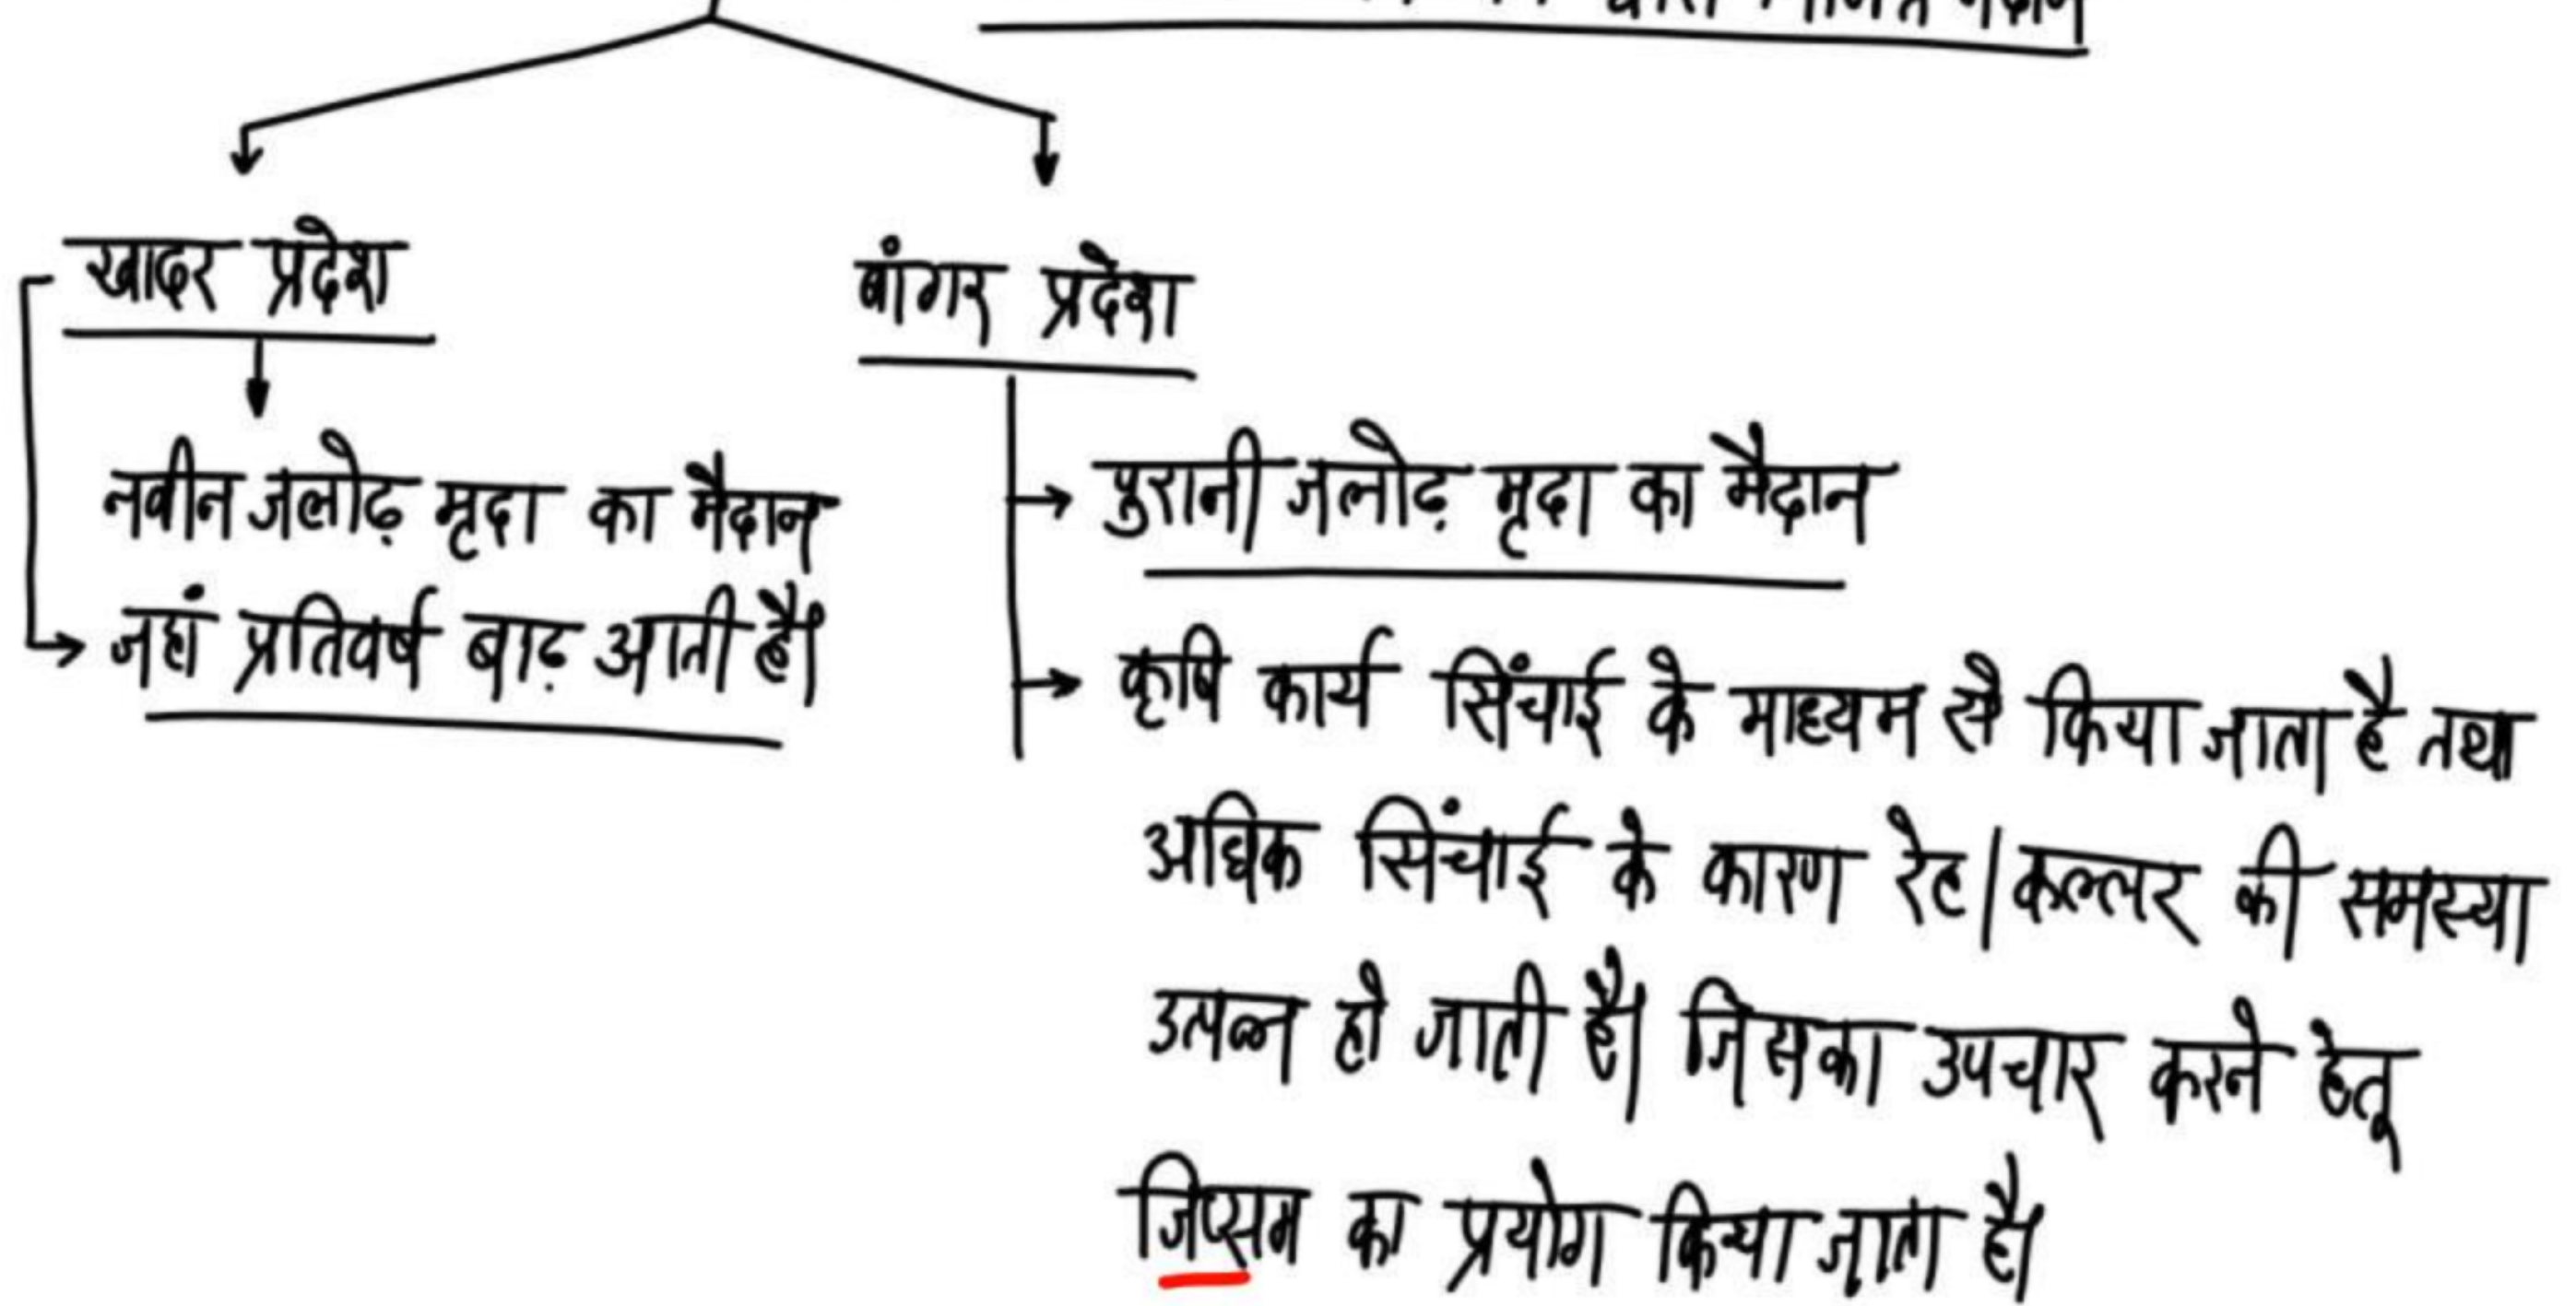 द्वारा मैदान
खादर प्रदेश
नवीन जलोढ़ मृदा का मैदान
जहां प्रतिवर्ष बाढ़ आती है।
बांगर प्रदेश
पुरानी जलोढ़ मृदा का मैदान
कृषि कार्य सिंचाई के माध्यम से किया जाता है तथा
अधिक सिंचाई के कारण रेह/कल्लर की समस्या
उत्पन्न हो जाती है। जिसका उपचार करने हेतू
जिप्सम का प्रयोग किया जाता है।